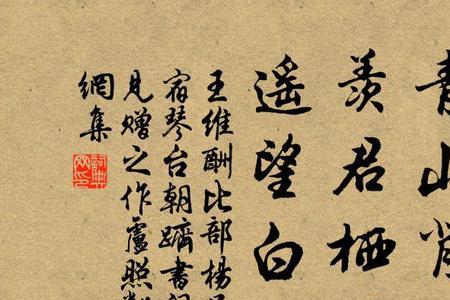 青山
羡君栖
遥望白
王维酬比部杨
宿琴台朝跻书
见赠之作卢照
網集